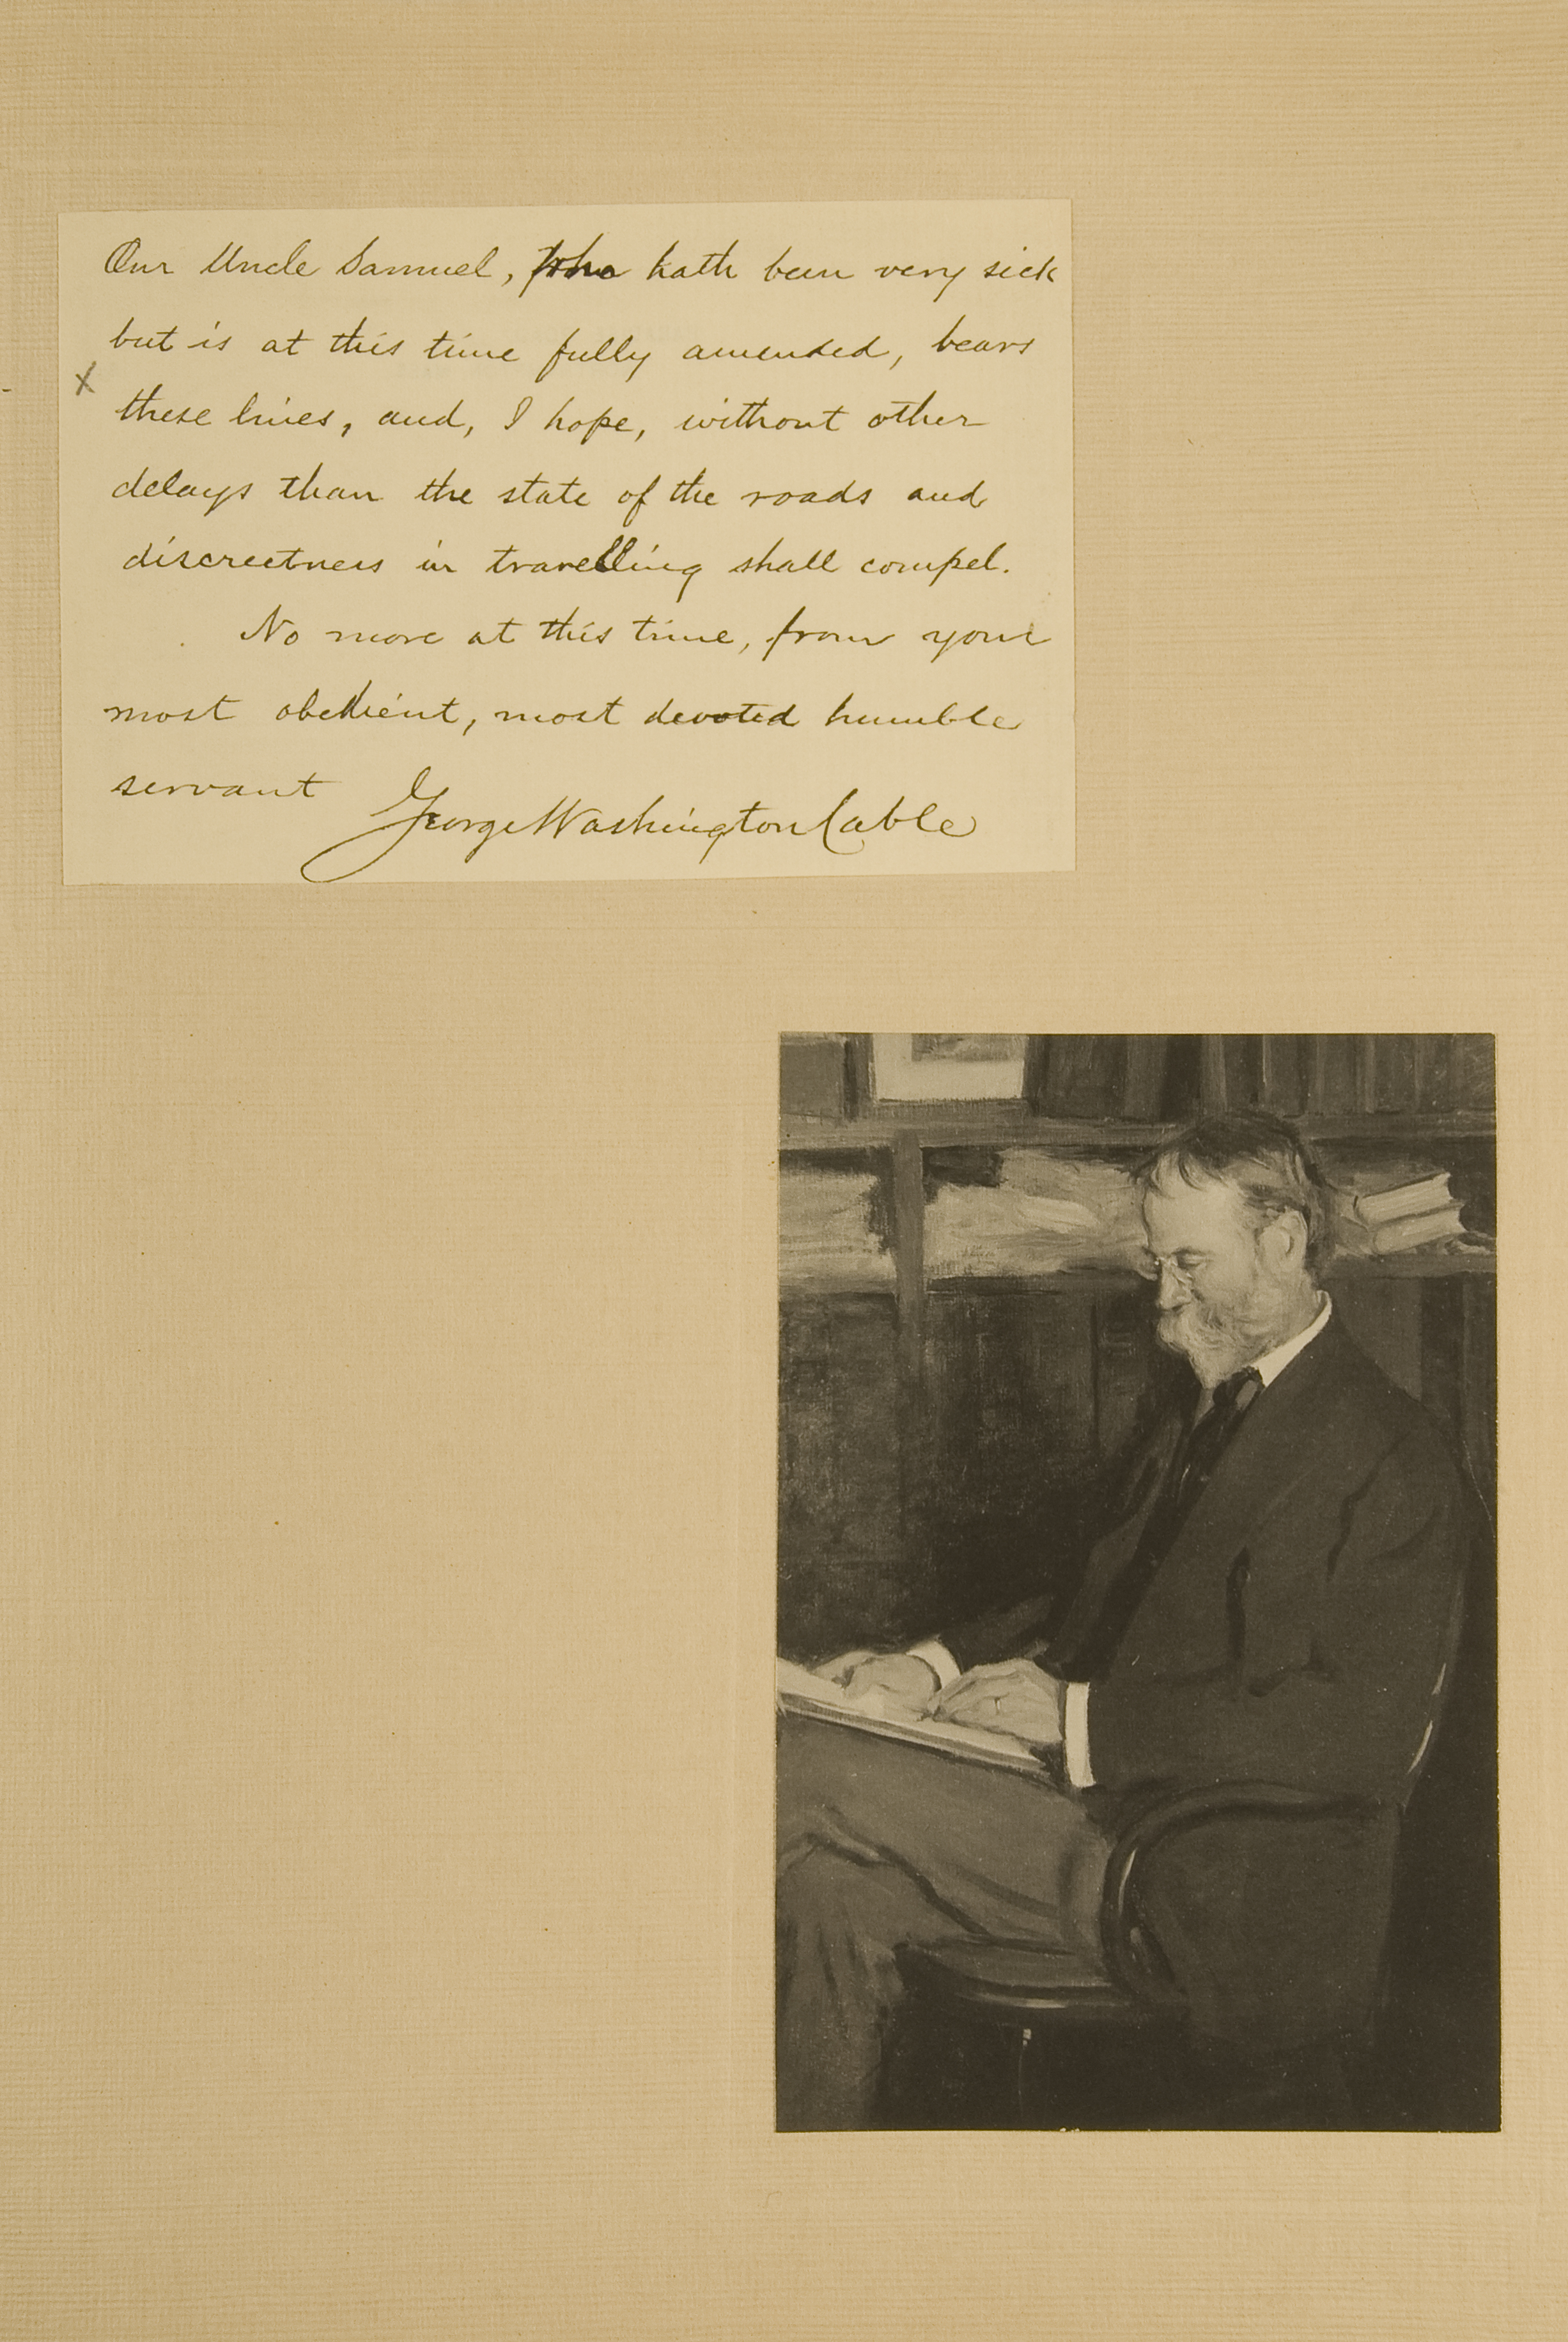 Our Uncle Samuel, who hath been very sick
but is at this time fully amended, bears
x
these lines, and, I hope, without other
delays than the state of the roads and
discreetness in travelling shall compel.
No more at this time, from your
most obedient, most devoted humble
servant
George Washington Cable